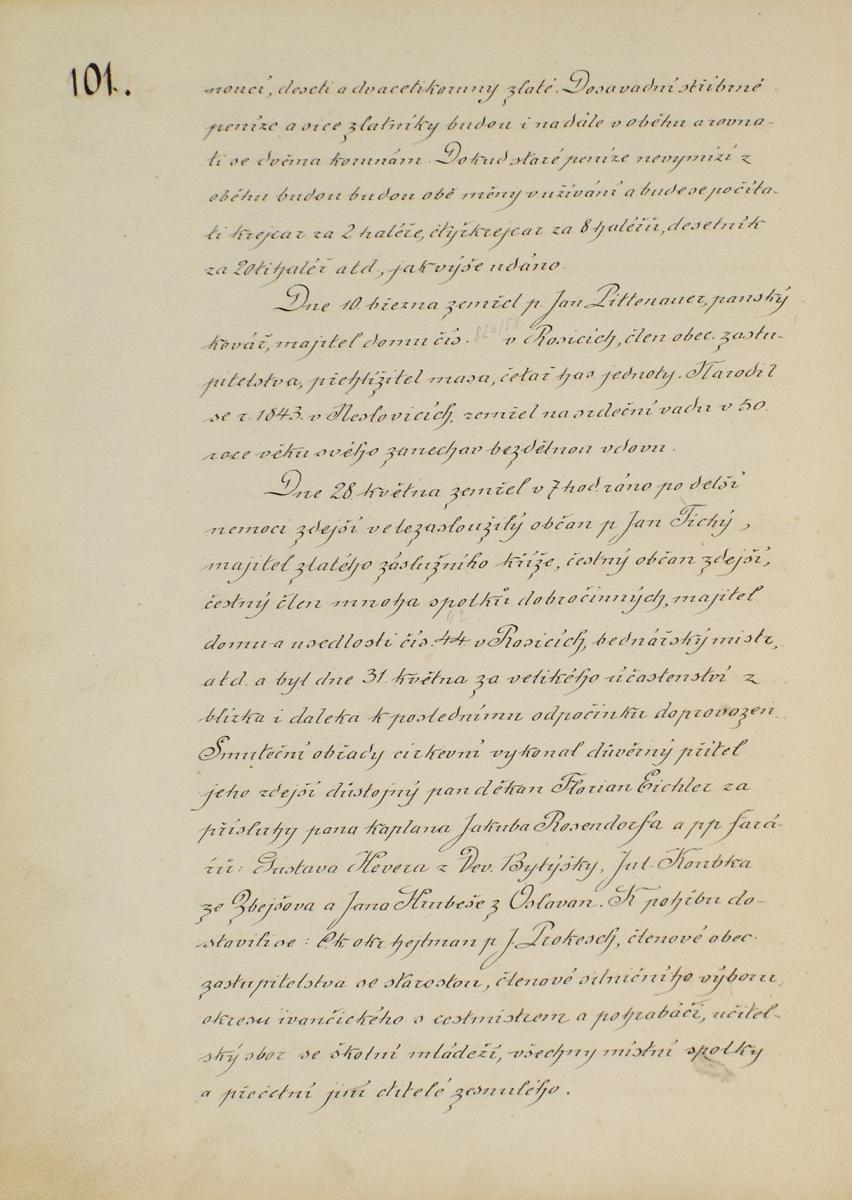 101.
noucí, deseti a dvacetikoruny zlaté. Dosavadní stříbrné
peníze a sice zlatníky budou i nadále v oběhu a rovna-
ti se dvěma korunám. Dokud staré peníze nevymizí z
oběhu budou budou obě měny v užívání a bude se počíta-
ti krejcar za 2 haléře, čtyřkrejcar za 8 haléřů, desetník
za 20ti haléř atd., jak výše udáno.
Dne 10. března zemřel p. Jan Pittenauer, panský
kovář, majitel domu čís. v Rosicích, člen obec. zastu-
pitelstva, přehlížitel masa, četař has. jednoty. Narodil
se r. 1843. v Neslovicích, zemřel na srdeční vadu v 50.
roce věku svého zanechav bezdětnou vdovu.
Dne 28. května zemřel v 7 hod. ráno po delší
nemoci zdejší velezasloužilý občan p. Jan Tichý,
majitel zlatého záslužního kříže, čestný občan zdejší,
čestný člen mnoha spolků dobročinných, majitel
domu a usedlosti čís. 44 v Rosicích, bednářský mistr,
atd. a byl dne 31. května za velikého účastenství z
blízka i daleka k poslednímu odpočinku doprovozen.
Smuteční obřady církevní vykonal důvěrný přítel
jeho zdejší důstojný pan děkan Florian Eichler za
přísluhy pana kaplana Jakuba Rosendorfa a pp. fará-
řů: Gustava Hevera z Vev. Bytýšky, Jul. Koubka
ze Zbejšova a Jana Hrubeše z Oslavan. K pohřbu do-
stavili se: C.k. okr. hejtman p. J. Prokesch, členové obec.
zastupitelstva se starostou, členové silničního výboru
okresu ivančického s cestmistrem a pohrabáči, učitel-
ský sbor se školní mládeží, všechny místní spolky
a přečetní jiní ctitelé zesnulého.